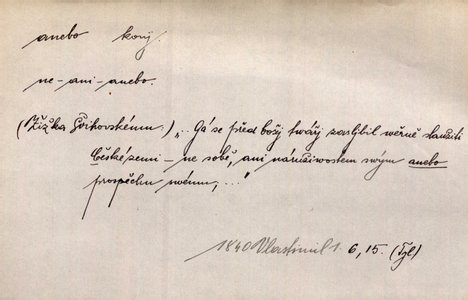 anebo koný.
ne-ani-anebo.
(Žižka Švihovskému:) „... Já se před božj twářj zaslýbil wěrně slaužiti
České zemi – ne sobě, ani náružiwostem swým anebo
prospěchu swému, ..."
1840 Vlastimil 1. 6, 15. (Tyl)